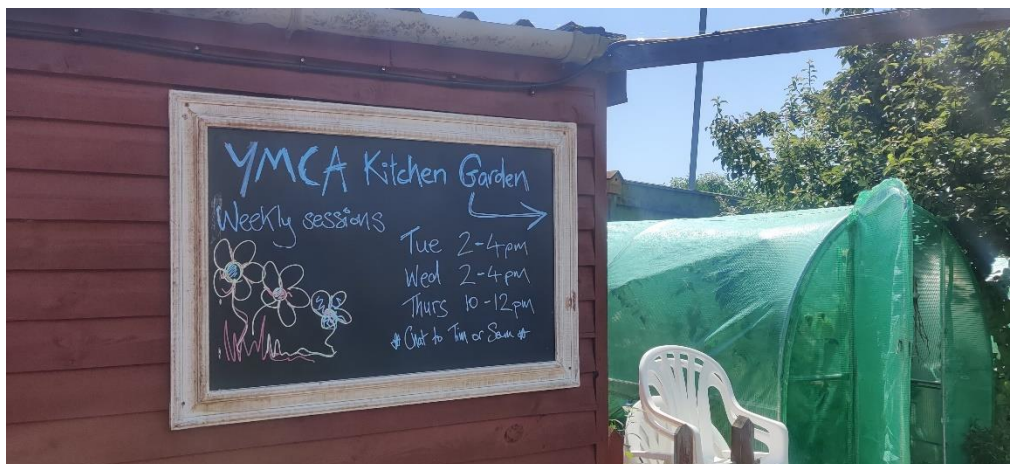 YMCA Kitchen Garden
Weekly sessions
Tue 2-4pm
Wed 2-4pm
Thurs 10-12pm
# Chat to Tim or Sam #